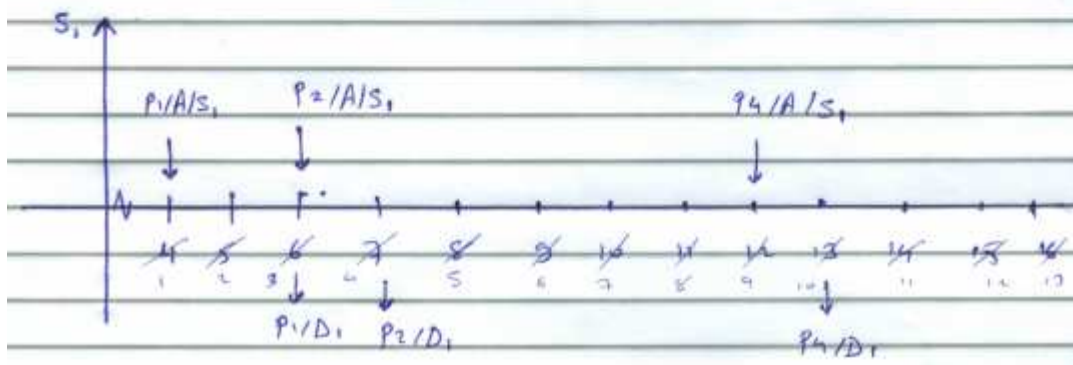 S₁
P1/A/S₁ P2/A/S₁ P4/A/S₁
4 5 6 7 8 9 10 11 12 13 14 15 16
1 2 3 4 5 6 7 8 9 10 11 12 13
P1/D₁ P2/D₁ P4/D₁